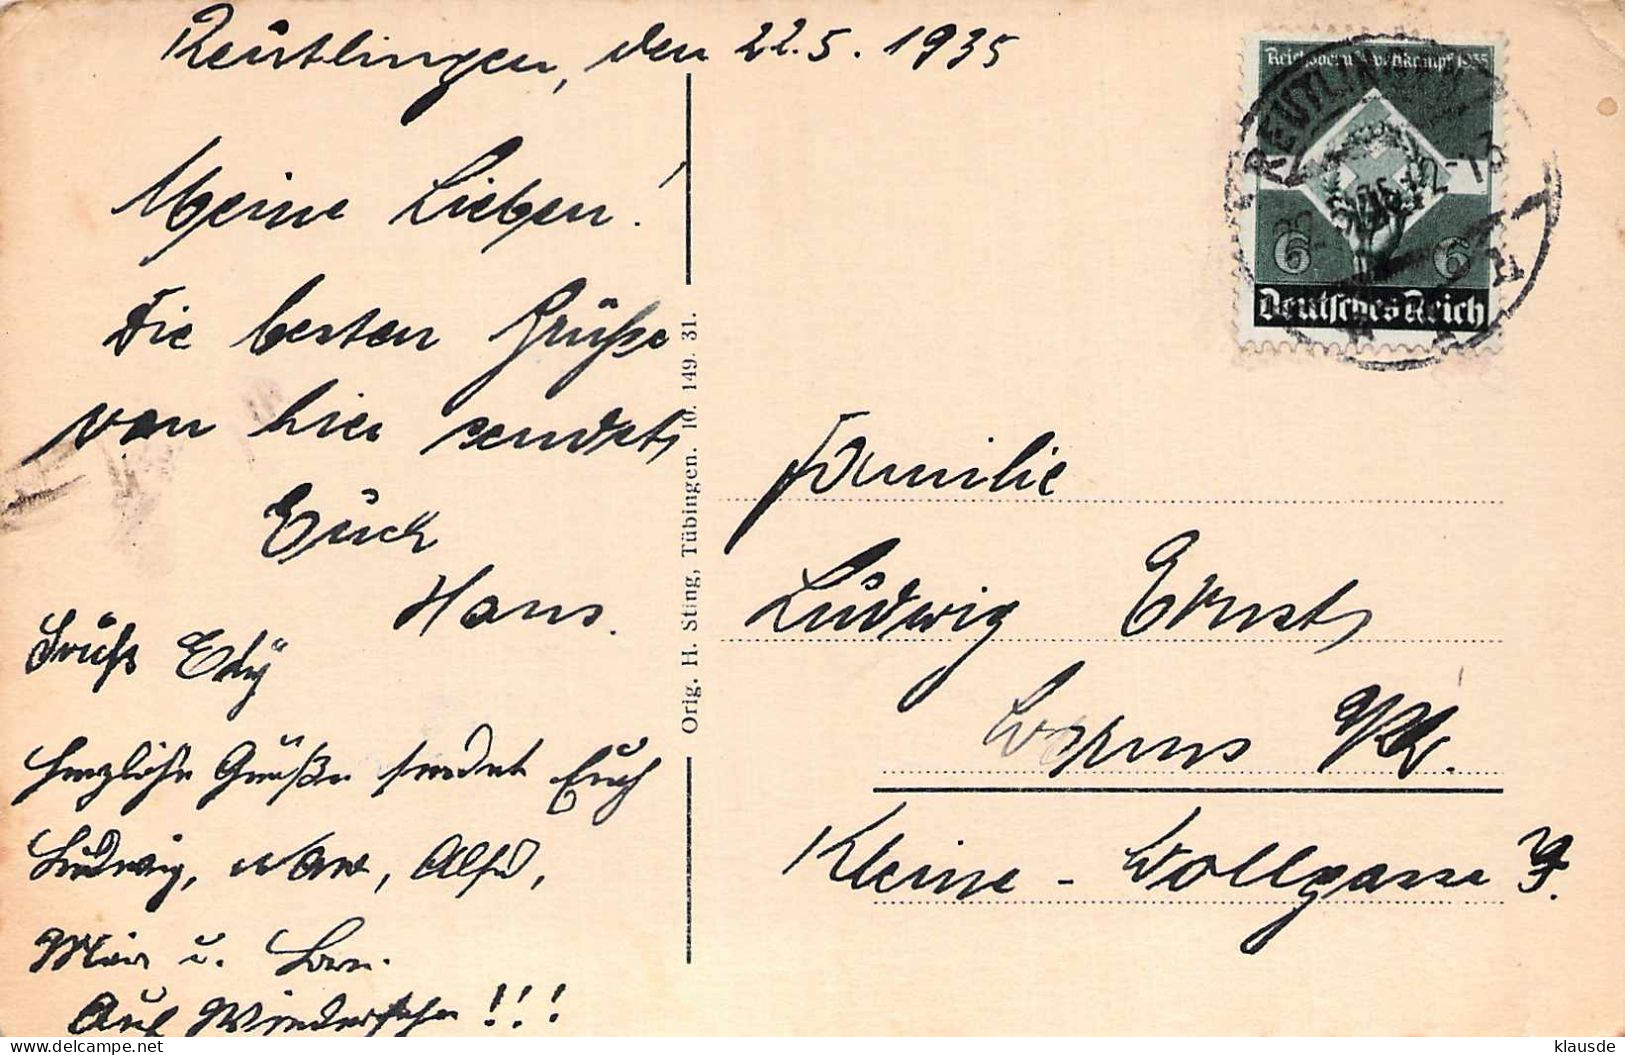 Reutlingen, den 22.5.1935
Meine Lieben!
Die besten Grüße
von hier sendet
Euch
Hans.
Grüße Edy
Herzliche Grüße sendet Euch
Ludwig,
u.
Auf Wiedersehn!!!
Orig. H. Sting, Tübingen. 10. 149. 31.
Reichsberufswettkampf 1935
REUTLINGEN
6 6
Deutsches Reich
Familie
Ludwig Ernst
Worms a/Rh.
Kleine-Wollgasse
klausde